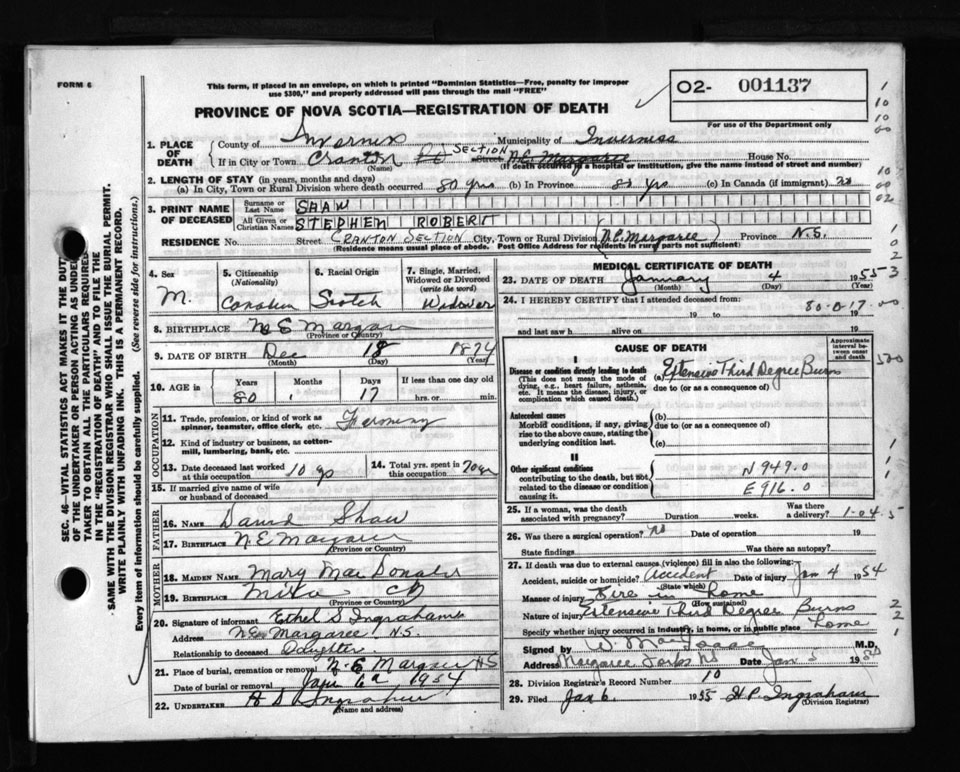 FORM 6
This form, if placed in an envelope, on which is printed "Dominion Statistics—Free, penalty for improper
use $300," and properly addressed will pass through the mail "FREE"
PROVINCE OF NOVA SCOTIA—REGISTRATION OF DEATH
O2- 001137
For use of the Department only
1. PLACE OF DEATH
County of Inverness Municipality of Inverness
If in City or Town Cranton SECTION Street N.E. Margaree House No.
(Name) (If death occurred in a hospital or institution, give the name instead of street and number)
2. LENGTH OF STAY (in years, months and days)
(a) In City, Town or Rural Division where death occurred 80 yrs (b) In Province 80 yrs (c) In Canada (if immigrant)
3. PRINT NAME OF DECEASED
Surname or Last Name SHAW
All Given or Christian Names STEPHEN ROBERT
RESIDENCE No. Street CRANTON SECTION City, Town or Rural Division (N.E. Margaree) Province N.S.
(Residence means usual place of abode. Post Office Address for residents in rural parts not sufficient)
4. Sex M.
5. Citizenship (Nationality) Canadian
6. Racial Origin Scotch
7. Single, Married, Widowed or Divorced (write the word) Widower
8. BIRTHPLACE N E Margaree
(Province or Country)
9. DATE OF BIRTH Dec 18 1874
(Month) (Day) (Year)
10. AGE in Years Months Days If less than one day old
80 17 hrs. or min.
OCCUPATION
11. Trade, profession, or kind of work as
spinner, teamster, office clerk, etc. Farming
12. Kind of industry or business, as cotton-
mill, lumbering, bank, etc.
13. Date deceased last worked at this occupation 10 14. Total yrs. spent in this occupation 70
15. If married give name of wife
or husband of deceased
FATHER
16. NAME David Shaw
17. BIRTHPLACE N.E Margaree
(Province or Country)
MOTHER
18. MAIDEN NAME Mary MacDonald
19. BIRTHPLACE Mira CB
(Province or Country)
20. Signature of informant Ethel S Ingraham
Address N.E. Margaree N.S.
Relationship to deceased Daughter
21. Place of burial, cremation or removal N.E Margaree NS
Date of burial or removal Jan 6 1954
22. UNDERTAKER Ingraham
(Name and address)
MEDICAL CERTIFICATE OF DEATH
23. DATE OF DEATH January 4 1955
(Month) (Day) (Year)
24. I HEREBY CERTIFY that I attended deceased from
19 to 80-0-17 19
and last saw h alive on 19
CAUSE OF DEATH
Approximate interval between onset and death
I
Disease or condition directly leading to death (a) Extensive Third Degree Burns
(This does not mean the mode of dying, e.g., heart failure, asthenia, etc. It means the disease, injury, or complication which caused death.)
due to (or as a consequence of)
Antecedent causes (b)
Morbid conditions, if any, giving rise to the above cause, stating the underlying condition last.
due to (or as a consequence of)
(c)
II
Other significant conditions
contributing to the death, but not related to the disease or condition causing it.
N 949.0
E 916.0
25. If a woman, was the death
associated with pregnancy? Duration weeks. Was there a delivery? 1-04
26. Was there a surgical operation? No Date of operation 19
State findings Was there an autopsy?
27. If death was due to external causes (violence) fill in also the following:
Accident, suicide or homicide? Accident Date of injury Jan 4 1954
(State which)
Manner of injury Fire in home
(How sustained)
Nature of injury Extensive Third Degree Burns
Specify whether injury occurred in industry, in home, or in public place home
Signed by M.D.
Address Margaree Forks NS Date Jan 5 19
28. Division Registrar's Record Number 10
29. Filed Jan 6 1955 H P. Ingraham
(Division Registrar)
SEC. 46—VITAL STATISTICS ACT MAKES IT THE DUTY
OF THE UNDERTAKER OR PERSON ACTING AS UNDER-
TAKER TO OBTAIN ALL THE PARTICULARS REQUIRED
IN THE "REGISTRATION OF DEATH" AND TO FILE THE
SAME WITH THE DIVISION REGISTRAR WHO SHALL ISSUE THE BURIAL PERMIT.
WRITE PLAINLY WITH UNFADING INK. THIS IS A PERMANENT RECORD.
Every item of information should be carefully supplied. (See reverse side for instructions.)